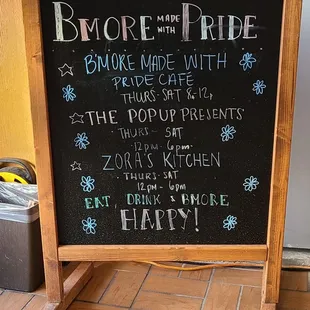 BMORE MADE WITH PRIDE
B'MORE MADE WITH
PRIDE CAFÉ
THURS-SAT 8-12p
THE POPUP PRESENTS
THURS - SAT
12pm - 6pm
ZORA'S KITCHEN
THURS - SAT
12pm - 6pm
EAT, DRINK & BMORE
HAPPY!